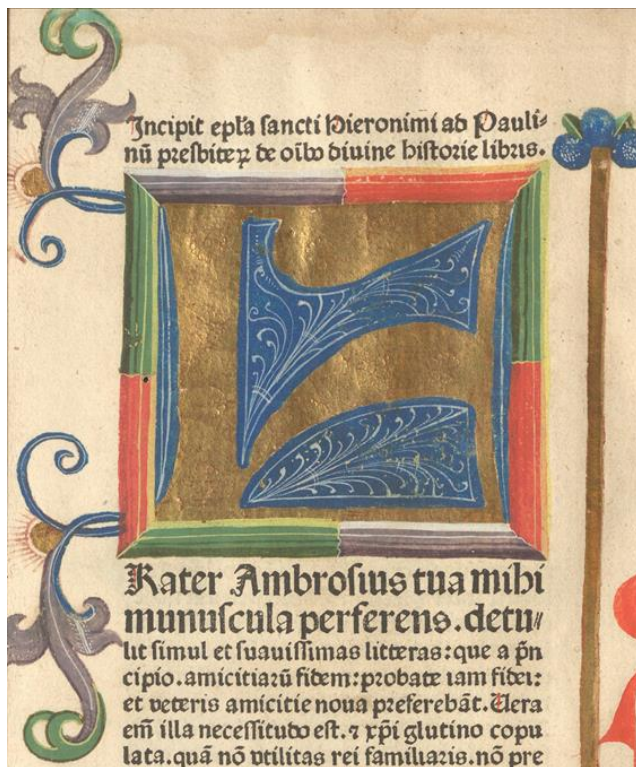 Incipit epl̄a sancti Hieronimi ad Pauli⸗
nū presbiteꝝ de oīb𝑜 diuine historie libris.
F
Rater Ambrosius tua mihi
munuscula perferens. detu⸗
lit simul et suauissimas litteras: que a pn̄
cipio. amicitiarū fidem: probate iam fidei:
et veteris amicitie noua preferebāt. Uera
em̄ illa necessitudo est. ⁊ xp̄i glutino copu
lata. quā nō vtilitas rei familiaris. nō pre